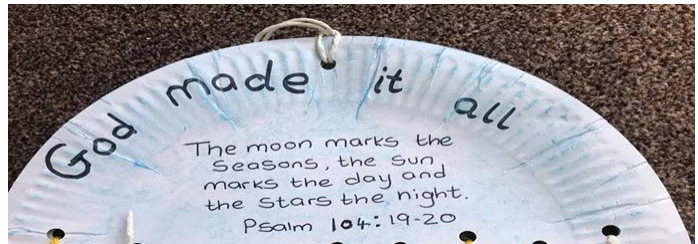 God made it all
The moon marks the
Seasons, the sun
marks the day and
the stars the night.
Psalm 104:19-20